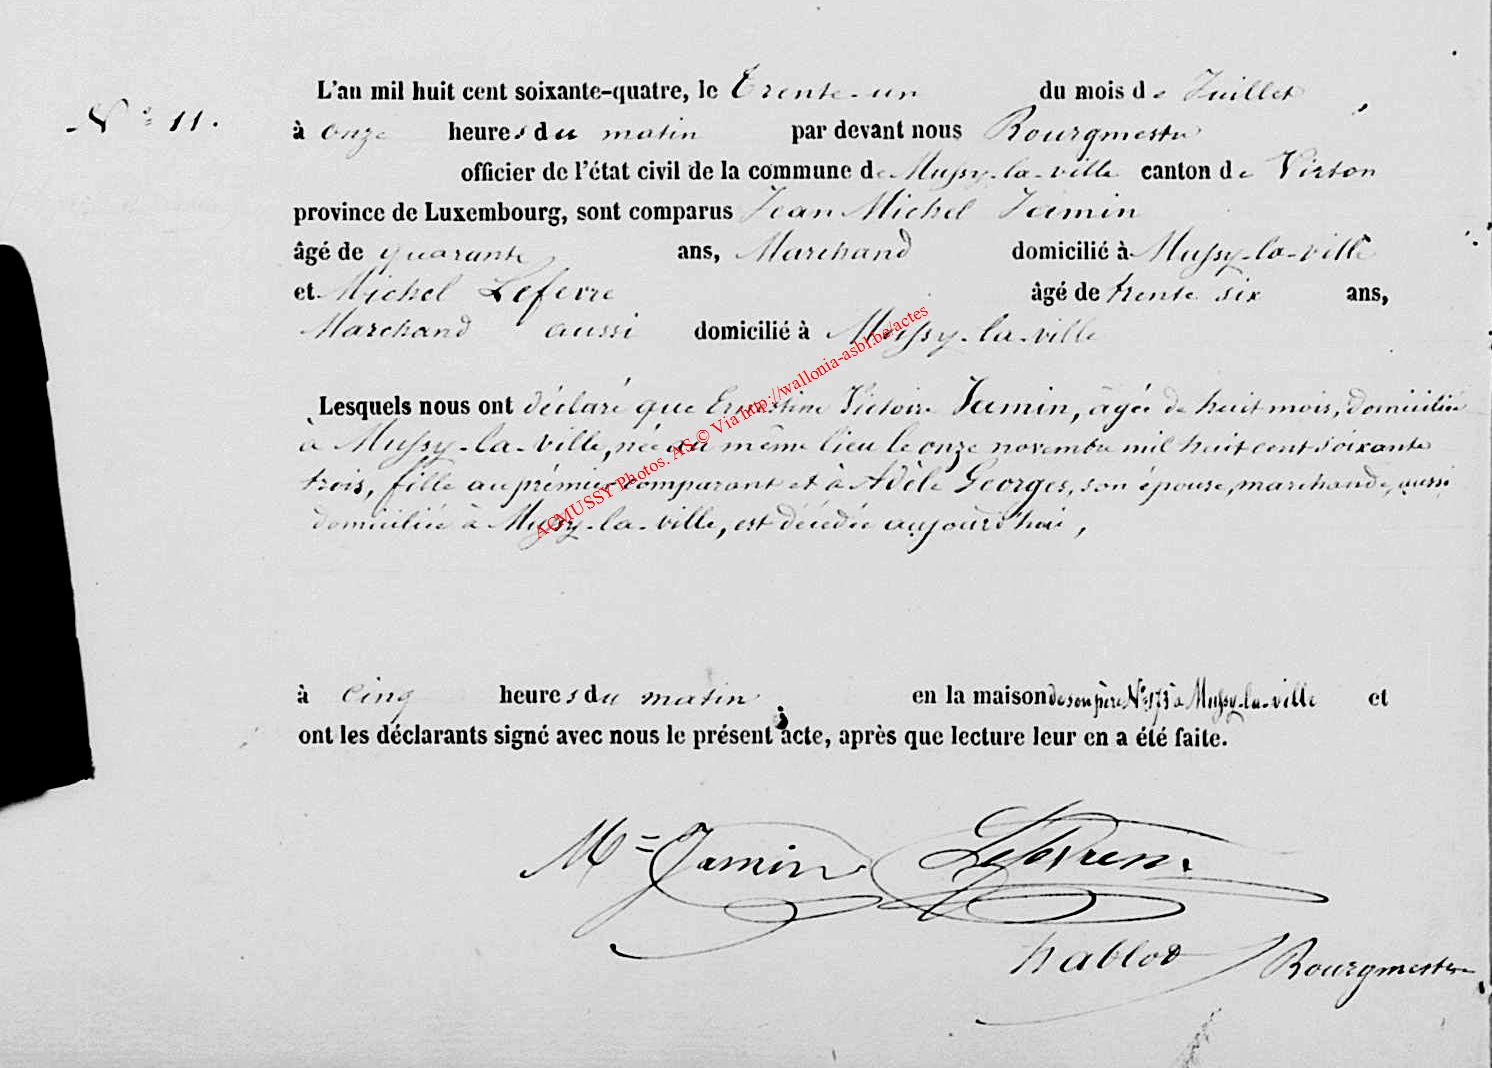 N° 11.
L'an mil huit cent soixante-quatre, le Trente-un du mois de Juillet,
à onze heures du matin par devant nous Bourgmestre
officier de l'état civil de la commune de Mussy-la-ville canton de Virton
province de Luxembourg, sont comparus Jean Michel Jamin
âgé de quarante ans, Marchand domicilié à Mussy-la-ville
et Michel Lefevre âgé de trente six ans,
Marchand aussi domicilié à Mussy-la-ville
Lesquels nous ont déclaré que Ernestine Victoire Jamin, âgée de huit mois, domiciliée
à Mussy-la-ville, née au même lieu le onze novembre mil huit cent soixante
trois, fille au prémier comparant et à Adèle Georges, son épouse, marchande, aussi
domiciliée à Mussy-la-ville, est décédée aujourd'hui,
à cinq heures du matin en la maison de son père N° 175 à Mussy-la-ville et
ont les déclarants signé avec nous le présent acte, après que lecture leur en a été faite.
M= Jamin Lefevre
Hablot Bourgmestre
ACMUSSY Photos. AS © Via http://wallonia-asbl.be/actes